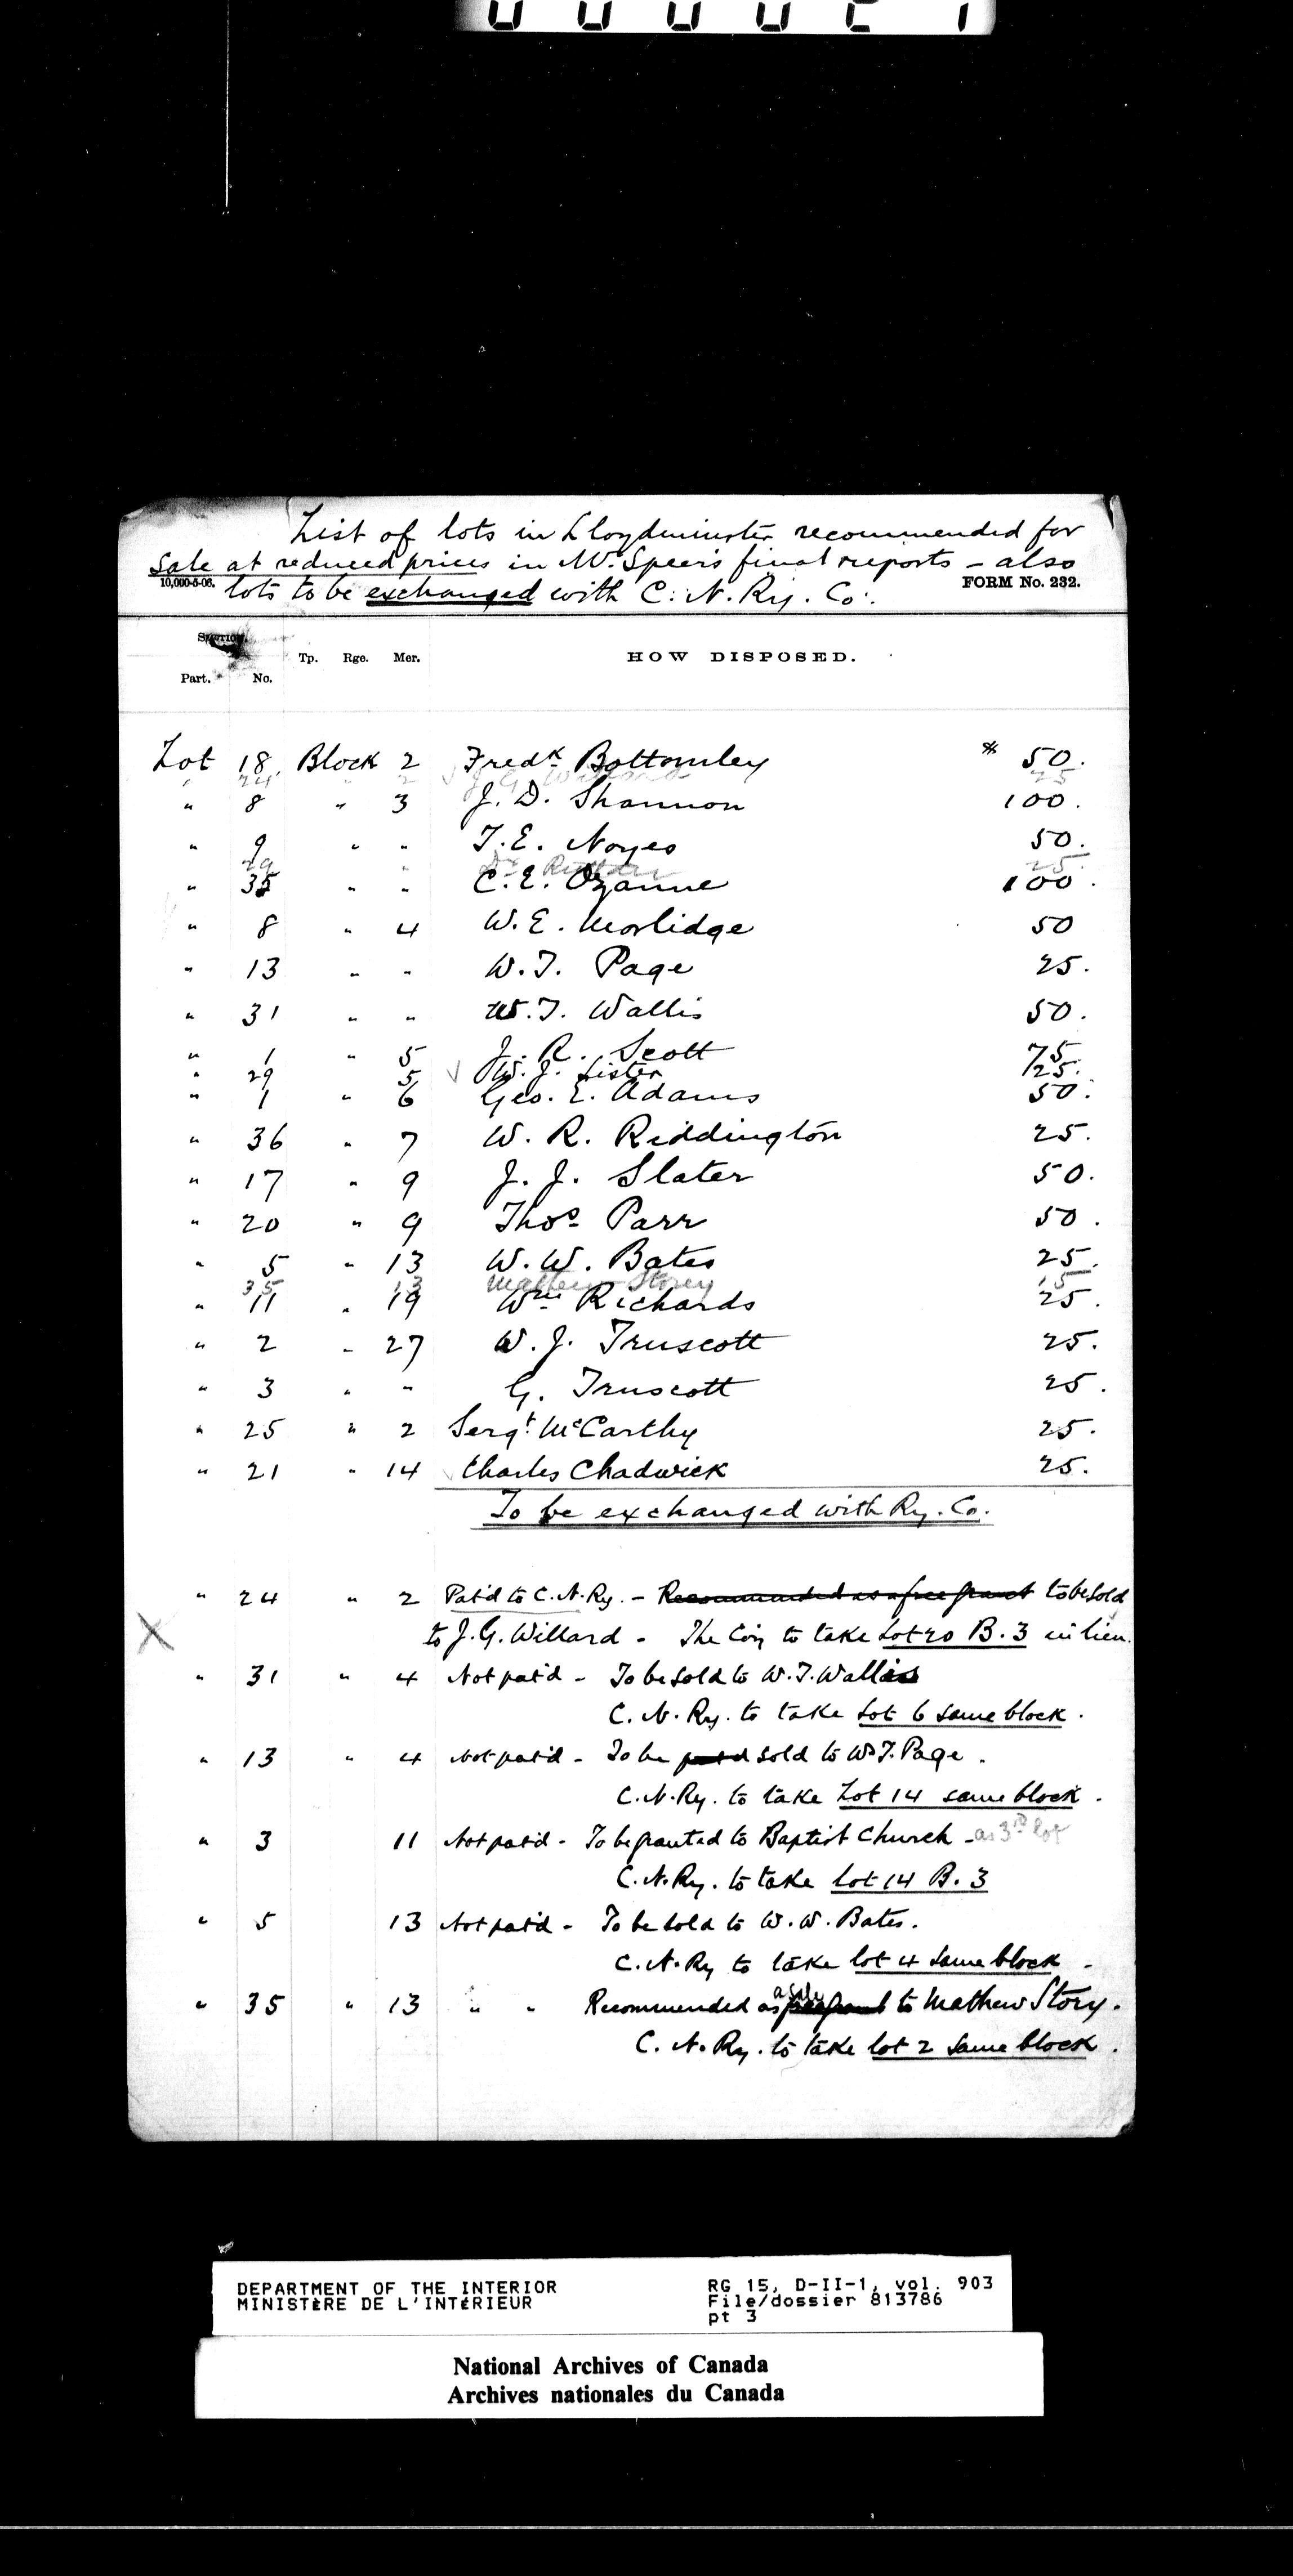 List of lots in Lloydminster recommended for
Sale at reduced prices in Mr. Speers final reports - also
10,000-5-06. lots to be exchanged with C. N. Ry. Co. FORM No. 232.
SECTION.
Part. No. Tp. Rge. Mer. HOW DISPOSED.
Lot 18 Block 2 Fredk Bottomley $ 50.
24 " 2 J. G. Willard 25
" 8 " 3 J. D. Shannon 100.
" 9 " " T. E. Noyes 50.
29 " Dr. 25.
" 35 " " C. E. Ozanne 100.
" 8 " 4 W. E. Morlidge 50
" 13 " " W. T. Page 25.
" 31 " " W. T. Wallis 50.
" 1 " 5 J. R. Scott 75.
" 29 5 W. J. Lister 25.
" 1 " 6 Geo. E. Adams 50.
" 36 " 7 W. R. Riddington 25.
" 17 " 9 J. J. Slater 50.
" 20 " 9 Thos Parr 50.
" 5 " 13 W. W. Bates 25.
35 13 Mathew Storey 15
" 11 " 19 Wm Richards 25.
" 2 " 27 W. J. Truscott 25.
" 3 " " G. Truscott 25.
" 25 " 2 Sergt McCarthy 25.
" 21 " 14 Charles Chadwick 25.
To be exchanged with Ry. Co.
" 24 " 2 Pat'd to C. N. Ry. - Recommended as a free grant to be sold
X to J. G. Willard - The Coy to take Lot 20 B. 3 in lieu.
" 31 " 4 Not pat'd - To be sold to W. T. Wallis
C. N. Ry. to take Lot 6 same block.
" 13 " 4 Not pat'd - To be pat'd sold to W. T. Page.
C. N. Ry. to take Lot 14 same block.
" 3 11 Not pat'd - To be granted to Baptist Church - as 3rd lot
C. N. Ry. to take lot 14 B. 3
" 5 13 Not pat'd - To be sold to W. W. Bates.
C. N. Ry to take lot 4 same block -
" 35 " 13 " " Recommended as free grant a sale to Mathew Story.
C. N. Ry. to take lot 2 same block.
DEPARTMENT OF THE INTERIOR RG 15, D-II-1, vol. 903
MINISTÈRE DE L'INTÉRIEUR File/dossier 813786
pt 3
National Archives of Canada
Archives nationales du Canada